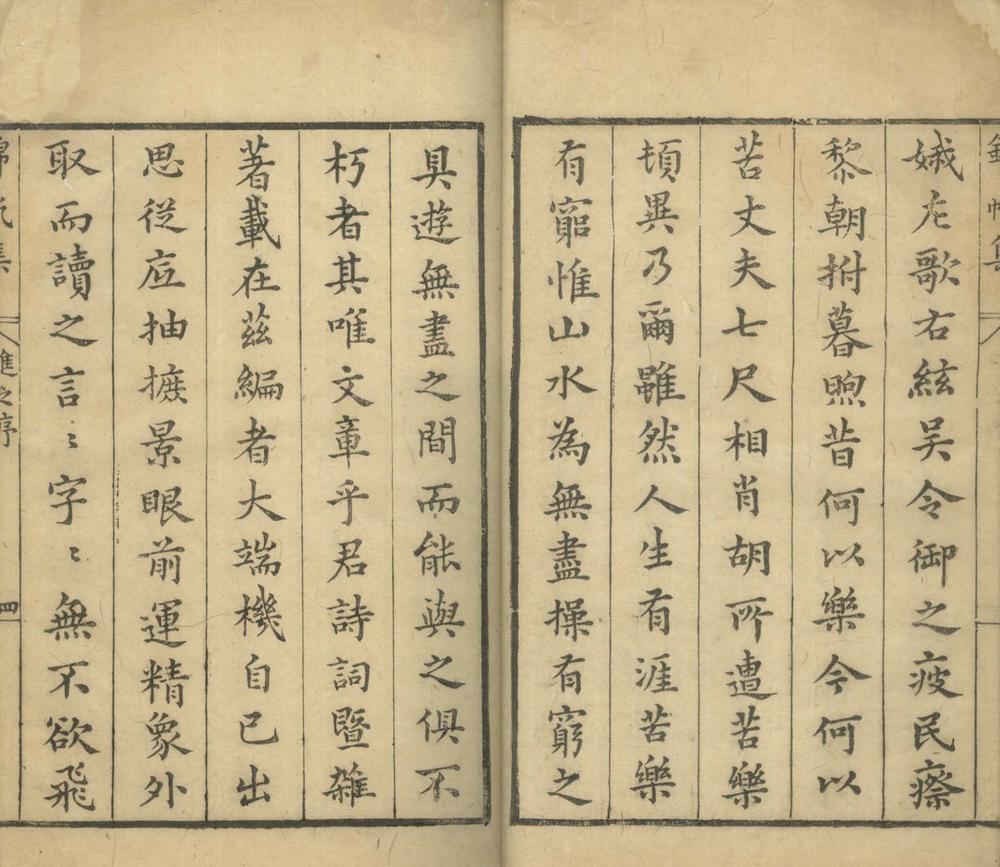 娥左歌右絃吳令御之疲民瘵
黎朝拊暮煦昔何以樂今何以
苦丈夫七尺相肖胡所遭苦樂
頓異乃爾雖然人生有涯苦樂
有窮惟山水為無盡操有窮之
具遊無盡之間而能與之俱不
朽者其唯文章乎君詩詞暨雜
著載在茲編者大端機自己出
思從底抽摭景眼前運精象外
取而讀之言〻字〻無不欲飛
錦帆集 進之序 四